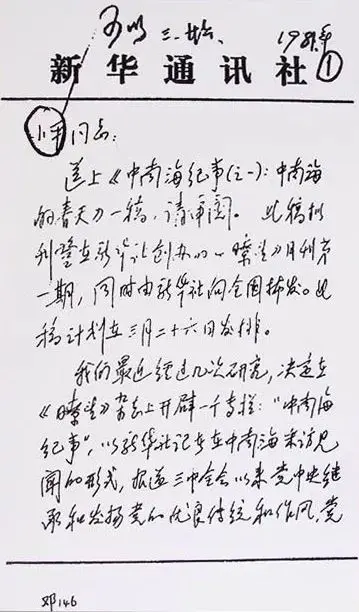 可以 三.廿六 1981年
新华通讯社 ①
小平同志:
送上《中南海纪事(之一):中南海
的春天》一稿,请审阅。此稿拟
刊登在新华社创办的《瞭望》月刊第
一期,同时由新华社向全国播发。此
稿计划在三月二十六日发排。
我们最近经过几次研究,决定在
《瞭望》杂志上开辟一个专栏:"中南海
纪事",以新华社记者在中南海采访见
闻的形式,报道三中全会以来党中央继
承和发扬党的优良传统和作风,党
邓146